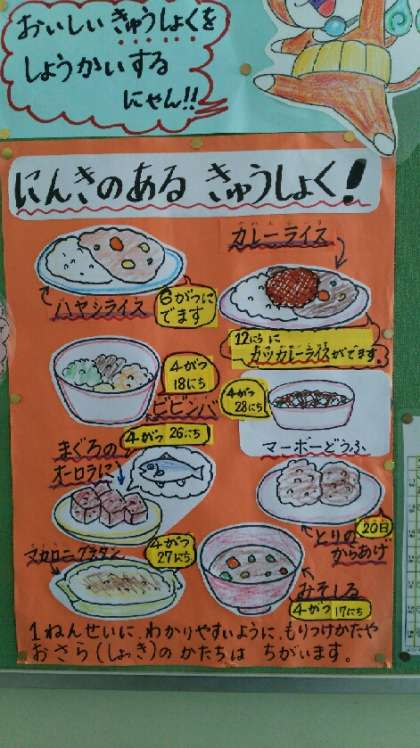 おいしいきゅうしょくを
しょうかいする
にゃん!!
にんきのある きゅうしょく!
カレーライス
ハヤシライス
6がつに
でます
12にちに
カツカレーライスがでます。
4がつ
18にち
ビビンバ
4がつ
28にち
マーボーどうふ
まぐろの
オーロラに
4がつ 26にち
とりの
からあげ
20日
マカロニグラタン
4がつ
27にち
みそしる
4がつ 17にち
1ねんせいに、わかりやすいように、もりつけかたや
おさら(しょっき)の かたちは ちがいます。